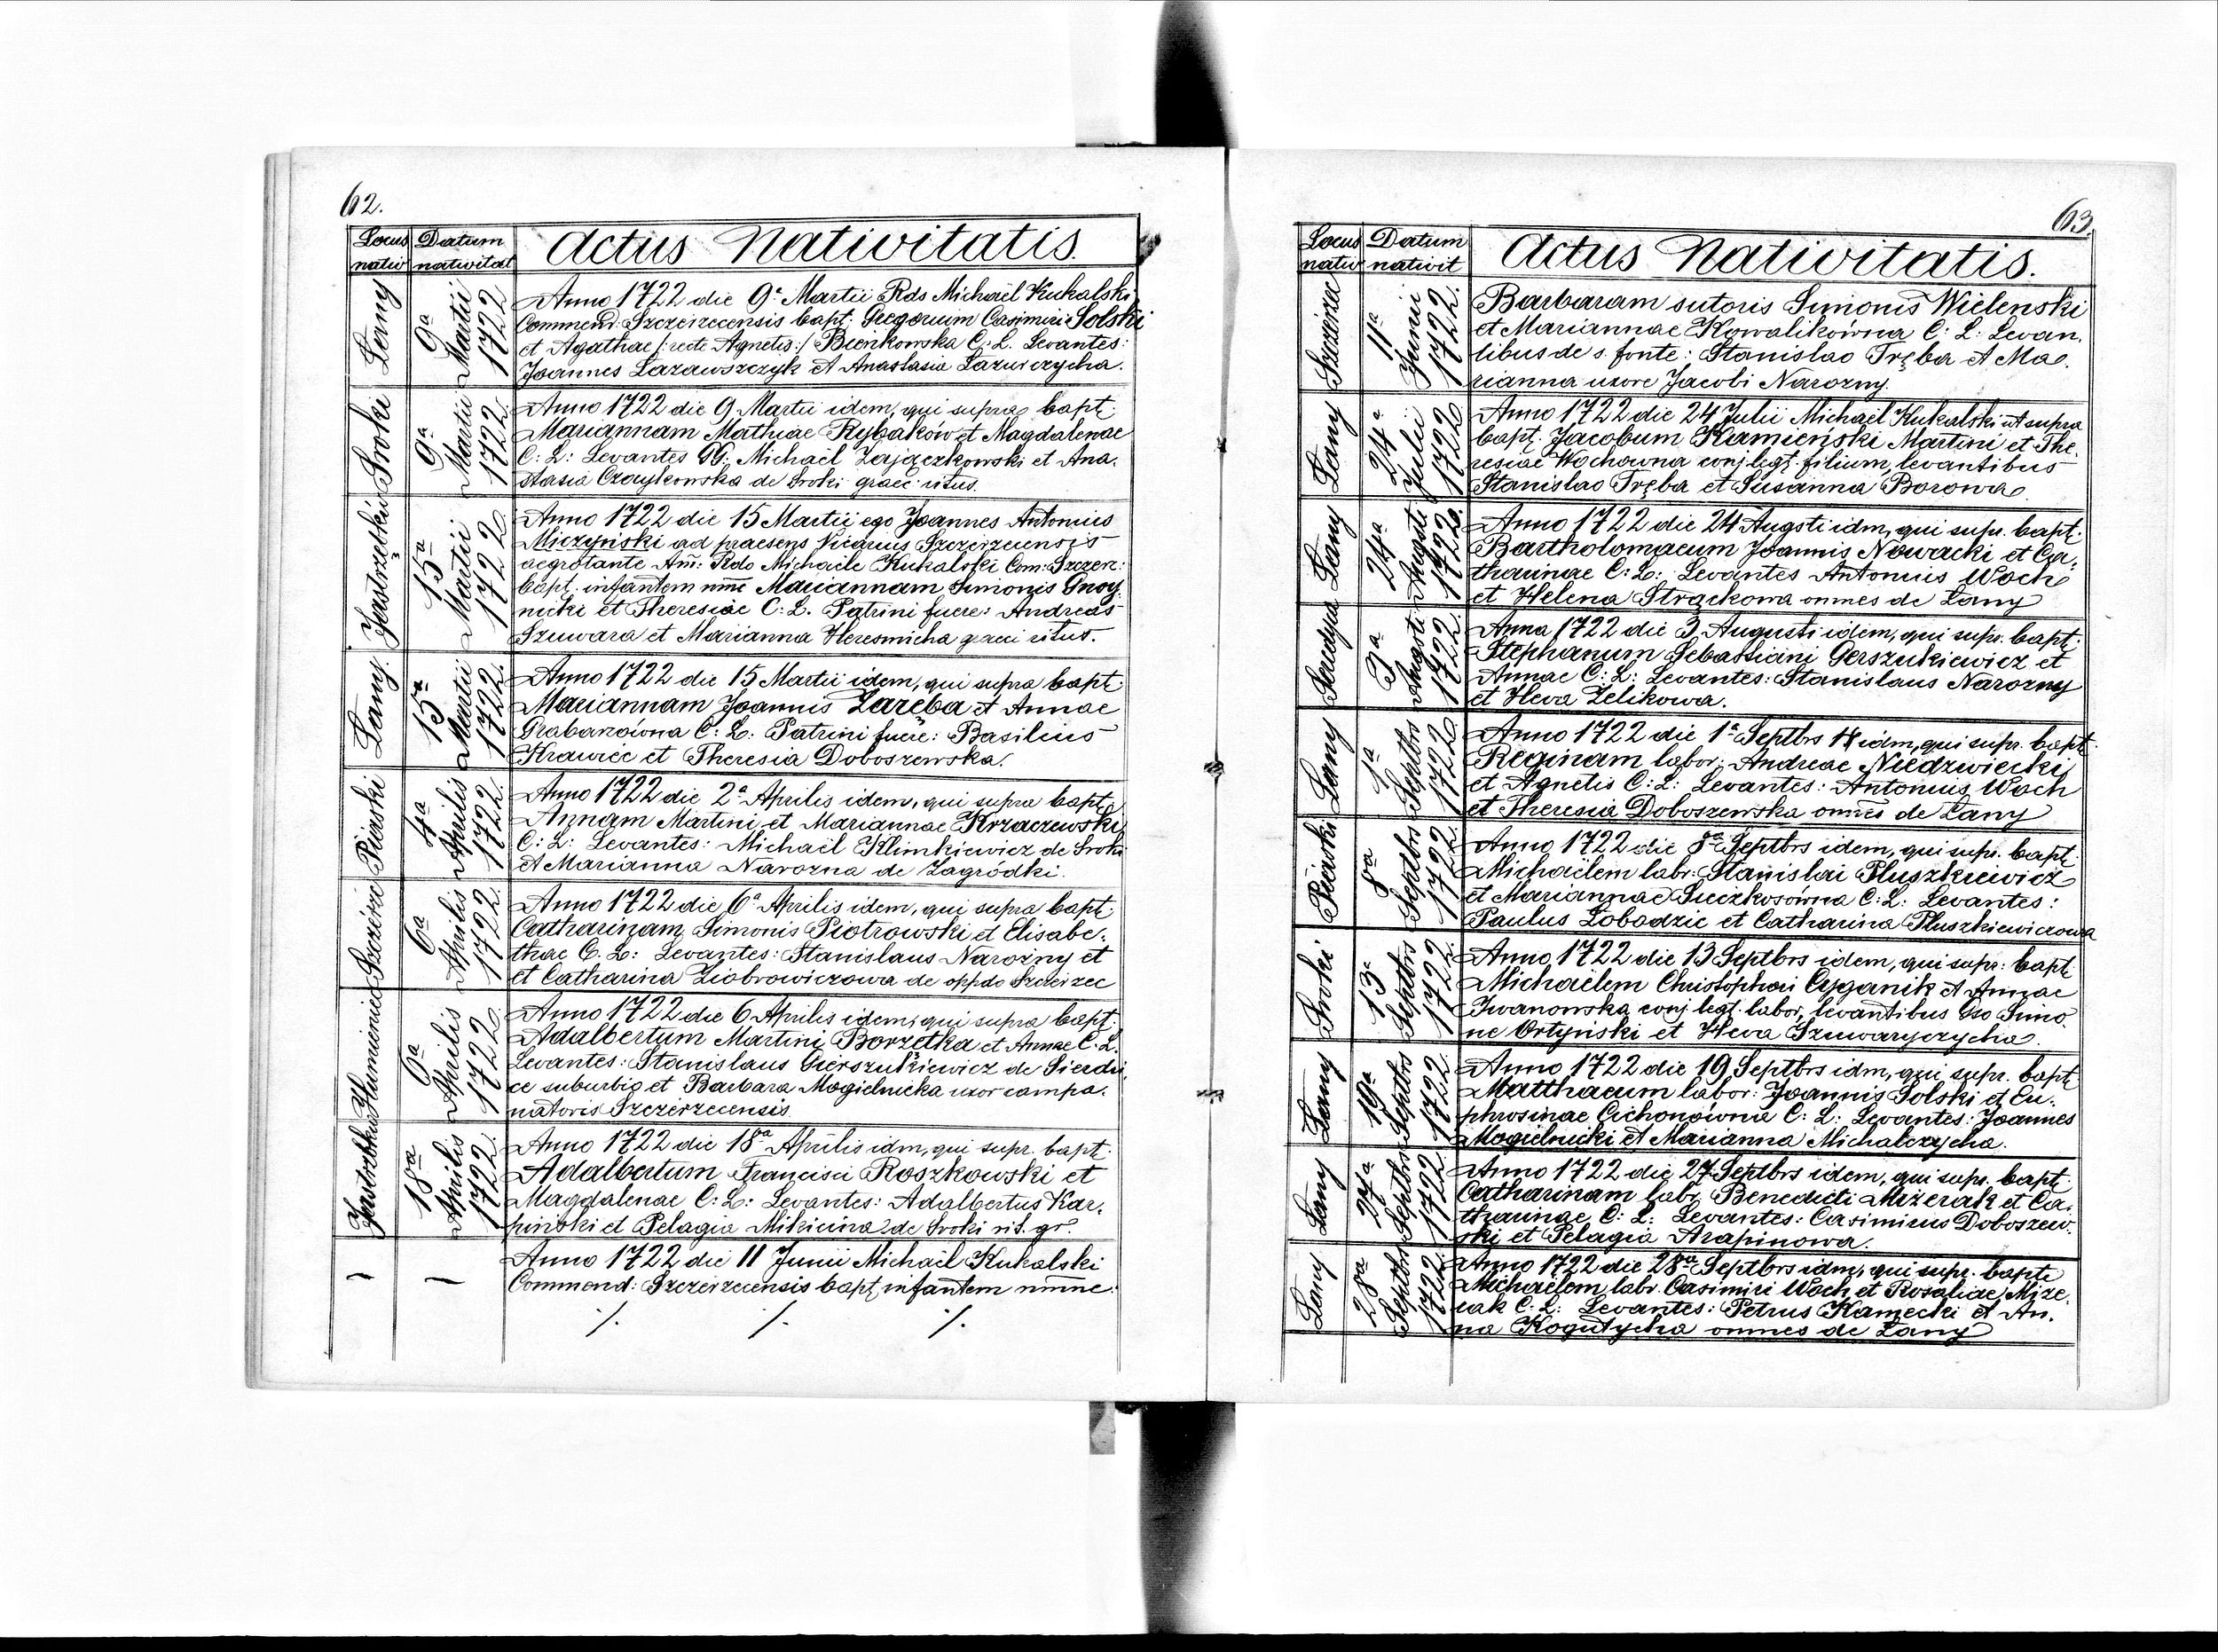 62.
Locus nativ
Datum nativitat
Actus Nativitatis.
Łany
9ª Martii 1722
Anno 1722 die 9ª Martii Rds Michaël Kukalski
Commend: Szczeirzecensis bapt: Gregorium Casimiri Solski
et Agathae /: recte Agnetis :/ Bienkowska C. L. Levantes:
Joannes Lazawszczyk et Anastasia Lazuwczycha.
Sroki
9ª Martii 1722.
Anno 1722 die 9 Martii idem, qui supra bapt:
Mariannam Mathiae Rybaków et Magdalenae
C: L: Levantes GG: Michaël Zajączkowski et Ana.
stasia Czaykowska de Sroki graeci ritus.
Jastrzębki
15ª Martii 1722
Anno 1722 die 15 Martii ego Joannes Antonius
Miczyński ad praesens Vicarius Szczeirzecensis
aegrotante Am: Rdo Michaële Kukalski Com: Szczerz:
bapt. infantem nme Mariannam Simonis Gnoy
nicki et Theresiae C: L. Patrini fuere: Andreas
Szuwara et Marianna Heresmicha graeci ritus.
Łany
15ª Martii 1722.
Anno 1722 die 15 Martii idem, qui supra bapt:
Mariannam Joannis Zaręba et Annae
Grabanówna C: L: Patrini fuere: Basilius
Krawiec et Theresia Doboszewska.
Piaski
4ª Aprilis 1722.
Anno 1722 die 2ª Aprilis idem, qui supra bapt:
Annam Martini et Mariannae Krzaczewski
C: L: Levantes: Michaël Klimkiewicz de Sroki
et Marianna Narozna de Zagródki.
6ª Aprilis 1722.
Anno 1722 die 6ª Aprilis idem, qui supra bapt:
Catharinam Simonis Piotrowski et Elisabe.
thae C. L: Levantes: Stanislaus Narozny et
et Catharina Ziobrowiczowa de oppdo Szczeirzec
Humieniec
6ª Aprilis 1722.
Anno 1722 die 6 Aprilis idem, qui supra bapt:
Adalbertum Martini Borzętka et Annae C. L.
Levantes: Stanislaus Gierszukiewicz de Sierdy
ce suburbio et Barbara Mogielnicka uxor campa.
natoris Szczeirzecensis
Jastrzbki
18ª Aprilis 1722.
Anno 1722 die 18ª Aprilis idm, qui supr. bapt.
Adalbertum Francisci Roszkowski et
Magdalenae C: L: Levantes: Adalbertus Kar.
pinski et Pelagia Mikicina de Sroki rit. gr.
Anno 1722 die 11 Junii Michaël Kukalski
Commend: Szczeirzecensis bapt. infantem nmne:
/. /. /.
63.
Locus nativ
Datum nativit
Actus Nativitatis.
Szczerzec
11ª Junii 1722.
Barbaram sutoris Simonis Wielenski
et Mariannae Kowalikówna C: L: Levan.
libus de s. fonte: Stanislao Tręba et Ma.
rianna uxore Jacobi Narozny.
Łany
24ª Julii 1722
Anno 1722 die 24 Julii Michaël Kukalski ut supra
bapt. Jacobum Kamieński Martini et The.
resiae Wochowna conj legt. filium, levantibus
Stanislao Tręba et Susanna Borowa.
Łany
24ª Augsti 1722.
Anno 1722 die 24 Augsti idm, qui supr. bapt.
Bartholomaeum Joannis Nowacki et Ca.
tharinae C: L: Levantes Antonius Woch
et Helena Strąckowa omnes de Łany
3ª Augsti 1722.
Anna 1722 die 3 Augusti idem, qui supr. bapt:
Stephanum Sebastiani Gerszukiewicz et
Annae C: L: Levantes: Stanislaus Narozny
et Heva Zelikowa.
Łany
1ª Septbrs 1722.
Anno 1722 die 1ª Septbrs idm, qui supr. bapt.
Reginam labor: Andreae Niedzwiecki
et Agnetis C: L: Levantes: Antonius Woch
et Theresia Doboszewska omnes de Łany
Piaski
8ª Septbrs 1722
Anno 1722 die 8ª Septbrs idem, qui supr. bapt:
Michaëlem labr. Stanislai Pluszkiewicz
et Mariannae Suczkosówna C: L: Levantes:
Paulus Łobodzic et Catharina Pluszkiewiczowa
Sroki
13ª Septbrs 1722.
Anno 1722 die 13 Septbrs idem, qui supr: bapt.
Michaëlem Christophori Cyganik et Annae
Iwanowska conj. legt. labor, levantibus Gso Simo.
ne Ortyński et Heva Szuwarycycha.
Łany
19ª Septbrs 1722
Anno 1722 die 19 Septbrs idm, qui supr. bapt:
Matthaeum labor: Joannis Solski et Eu.
phrosinae Cichonówna C: L: Levantes: Joannes
Mogielnicki et Marianna Michalczycha.
Łany
27ª Septbrs 1722
Anno 1722 die 27 Septbrs idem, qui supr. bapt.
Catharinam labr. Benedicti Mizerak et Ca.
tharinae C: L: Levantes: Casimirus Doboszew.
ski et Pelagia Arapinowa.
Łany
28ª Septbr 1722.
Anno 1722 die 28ª Septbrs idm, qui supr. bapt:
Michaëlem labr. Casimiri Woch et Rosaliae Mize.
rak C: L: Levantes: Petrus Kamecki et An.
na Kogutycha omnes de Łany